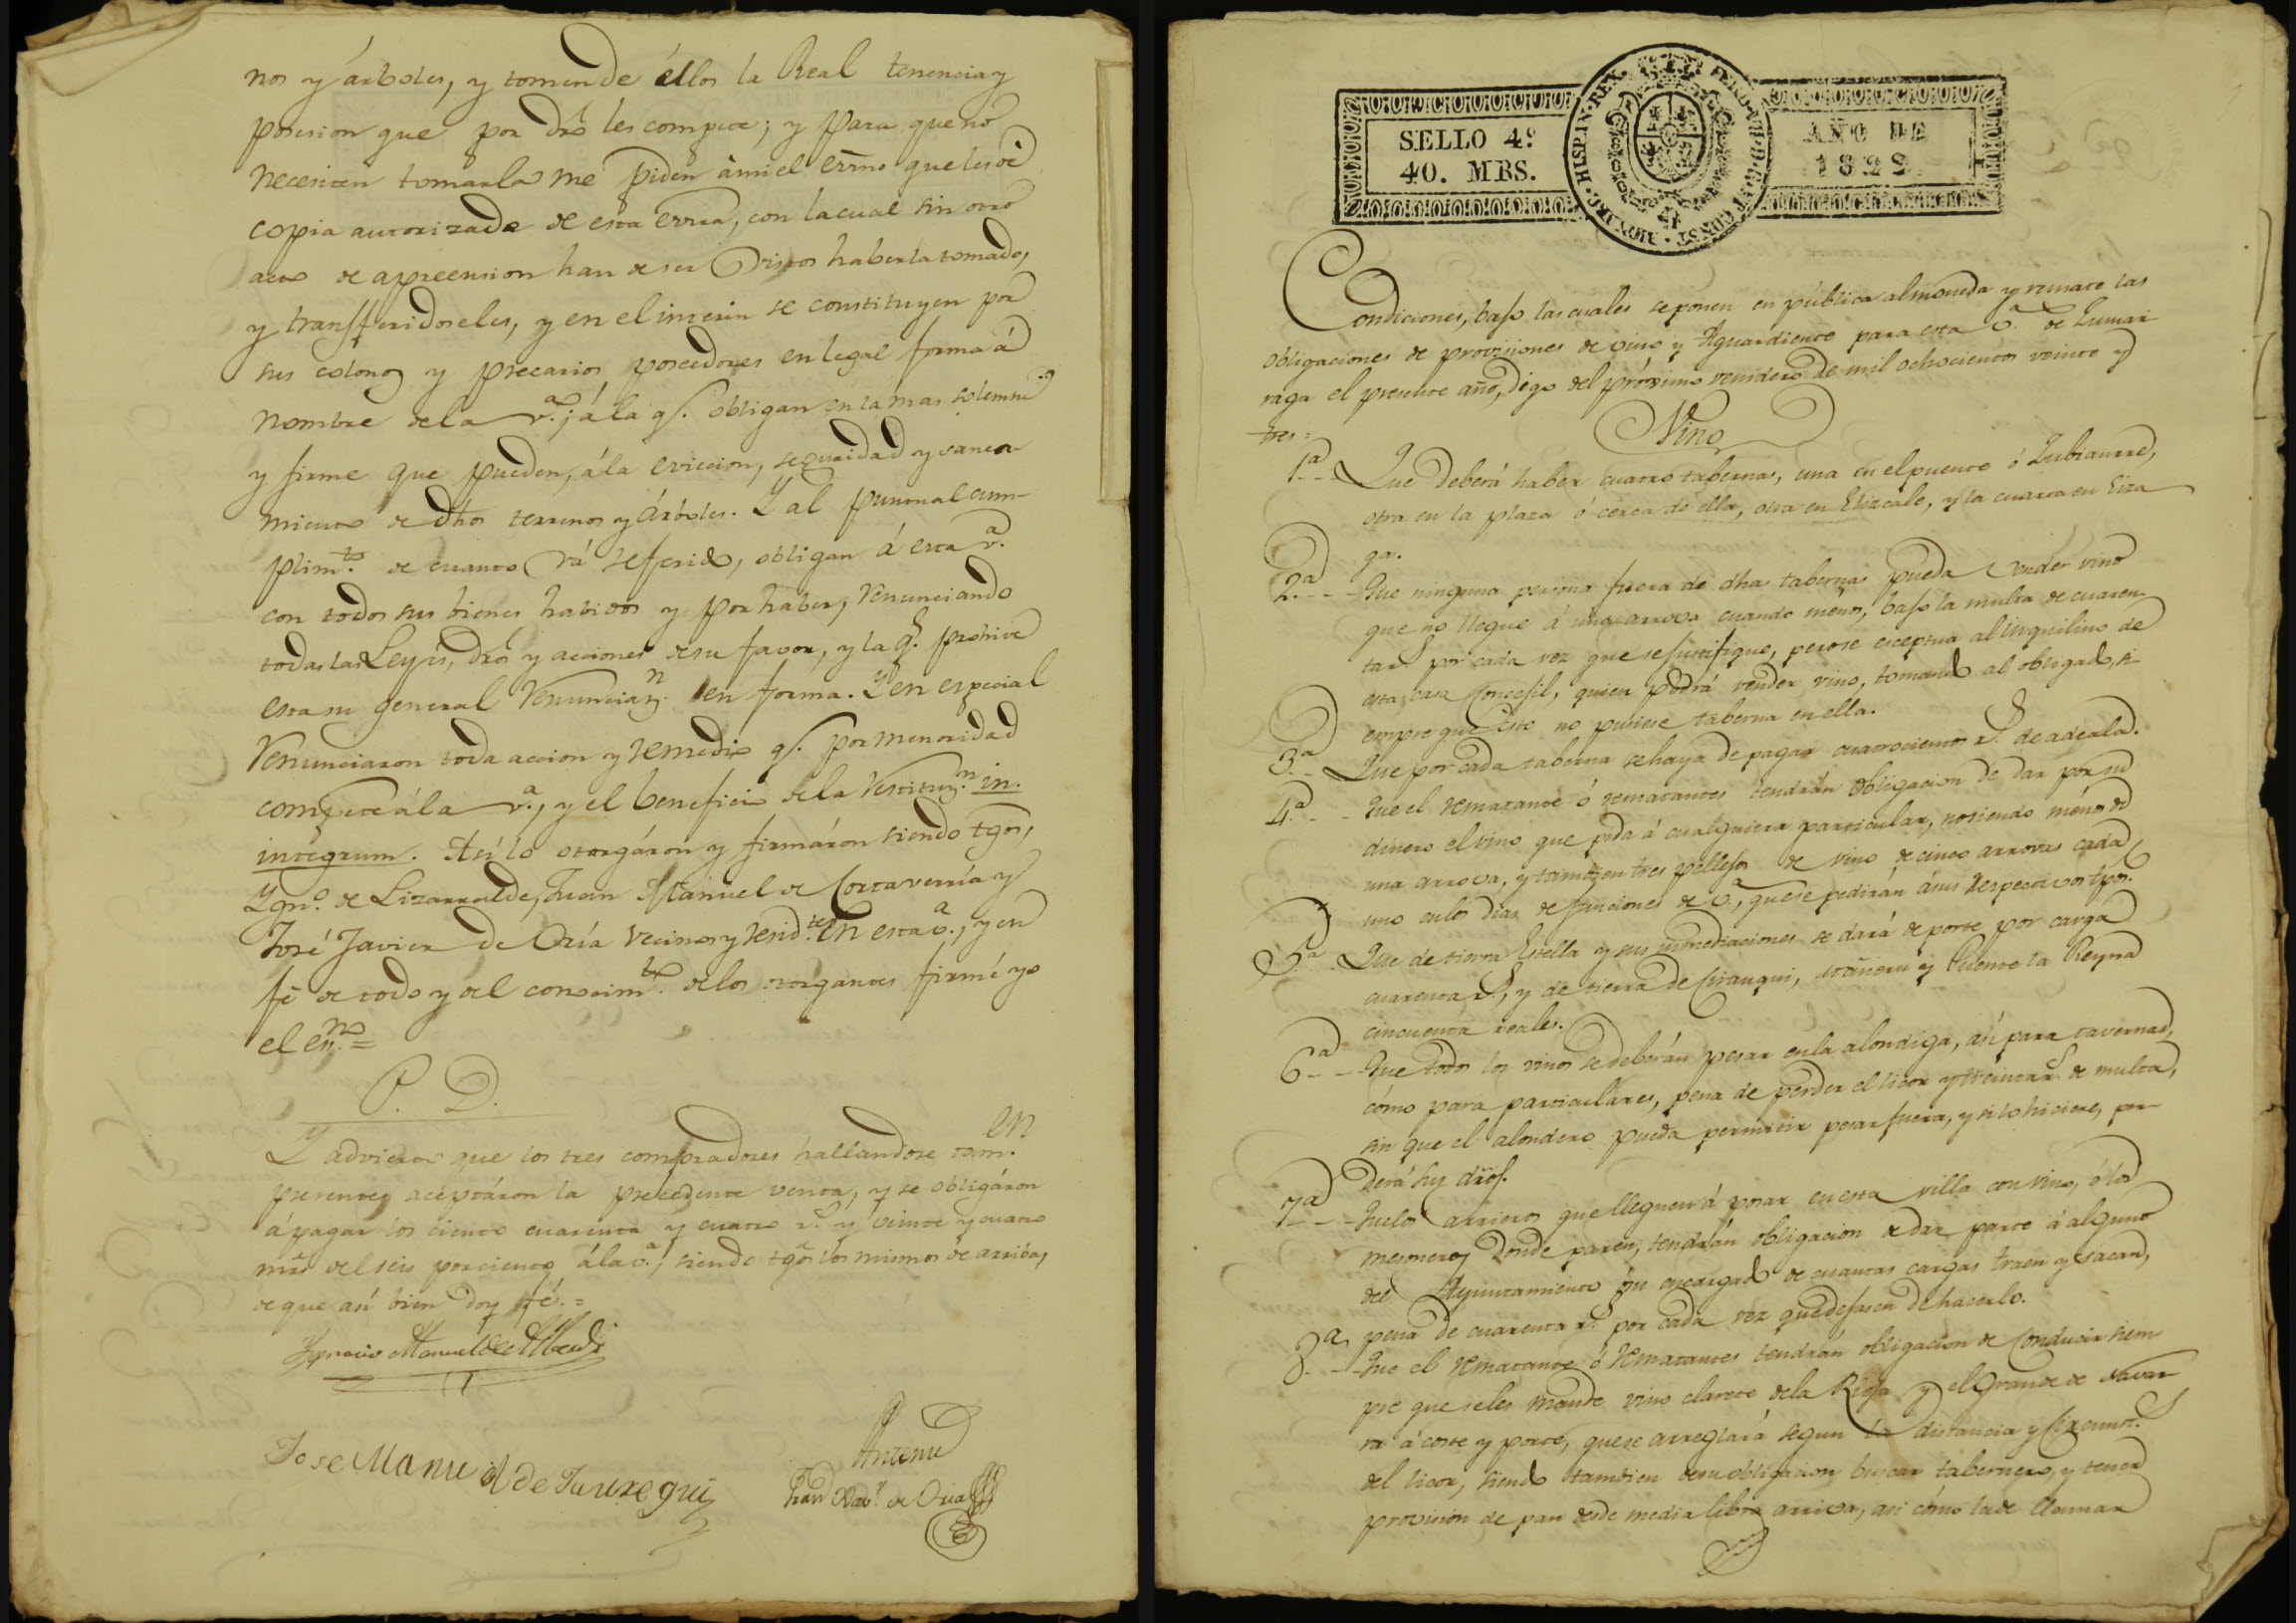 nos y árboles, y tomen de éllos la Real tenencia y
posesion que por dro les compete; y para que no
necesiten tomarla me piden à mi el essno que les dè
copia autorizada de esta essra, con la cual sin otro
acto de apreension han de ser vistos haberla tomado,
y transferidoseles, y en el interin se constituyen por
sus colonos y precarios poseedores en legal forma á
nombre de la v.ª; á la q.e obligan en la mas solemne
y firme que pueden, á la eviccion, seguridad y sanea-
miento de dhos terrenos y Árboles. Y al puntual cum-
plim.to de cuanto vá referido, obligan á esta v.ª
con todos sus bienes havidos y por haber, renunciando
todas las Leyes, dros y acciones de su favor, y la q.e prohive
esta su general renunciaz.n en forma. Y en especial
renunciaron toda accion y remedio q.e por menoridad
compete á la v.ª, y el beneficio de la restituz.n in-
integrum. Así lo otorgáron y firmáron siendo tgos,
Ygn.º de Lizarralde, Juan Manuel de Cortaverría y
José Javier de Oria vecinos y resid.tes en esta v.ª, y en
fé de todo y del conocim.to de los otorgantes firmé yo
el es.no =
P. D.
Y advierto que los tres compradores hallandose tam.en
presentes aceptáron la precedente venta, y se obligáron
á pagar los ciento cuarenta y cuatro r.s y veinte y cuatro
mrs del seis por ciento á la v.ª, siendo tgos los mismos de arriba,
de que así bien doy fé. =
Ygnacio Manuel de Alberdi
Jose Manuel de Jauregui
Antemi
Fran.co Xav.r de Oria
SELLO 4º
40. MRS.
HISP. IN. REX.
AÑO DE
1822
Condiciones, bajo las cuales se ponen en pública almoneda y remate las
obligaciones de provisiones de vino y Aguardiente para esta v.ª de Zumar-
raga el presente año, digo del próximo venidero de mil ochocientos veinte y
tres =
Vino
1ª - - Que deberá haber cuatro tabernas, una en el puente ó Zubiaurre,
otra en la plaza ó cerca de ella, otra en Elizcale, y la cuarta en Eiza-
ga.
2ª - - Que ninguna persona fuera de dhas tabernas pueda vender vino
que no llegue á una arrova cuando menos, bajo la multa de cuaren-
ta r.s por cada vez que se justifique, pero se esceptua al inquilino de
esta casa Concejil, quien podrá vender vino, tomando al obligado, si-
empre que éste no pusiese taberna en ella.
3ª - Que por cada taberna se haya de pagar cuatrocientos r.s de adeala.
4ª - - Que el rematante ó rematantes tendrán obligacion de dar por su
dinero el vino que pida á cualquiera particular, no siendo ménos de
una arrova, y tambien tres pellejos de vino de cinco arrovas cada
uno en los dias de funciones de v.ª, que se pedirán á sus respectivos tpos.
5ª - Que de tierra Estella y sus inmediaciones se dará de porte por carga
cuarenta r.s, y de tierra de Cirauqui, Mañeru y Puente la Reyna
cincuenta reales.
6ª - - Que todos los vinos se deberán pesar en la alondiga, así para tavernas,
cómo para particulares, pena de perder el licor y treinta r.s de multa,
sin que el alondero pueda permitir pesar fuera, y si lo hiciere, per-
derá sus dros.
7ª - - Que los arrieros que lleguen á posar en esta villa con vino, ó los
mesoneros donde paren, tendrán obligacion de dar parte á alguno
del Ayuntamiento ó su encargado de cuantas cargas traen y sacan,
pena de cuarenta r.s por cada vez que dejasen de hacerlo.
8ª - - Que el rematante ó rematantes tendrán obligacion de conducir siem-
pre que se les mande vino clarete de la Rioja y el Grande de Navar-
ra á coste y porte, que se arreglará segun la distancia y Circunst.s
del licor, siendo tambien de su obligacion buscar tabernero, y tener
provision de pan desde media libra arriva, asi cómo la de llamar